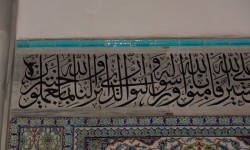 الله يسير فآمنوا بالله ورسوله والنور الذي أنزلنا والله بما تعملون خبير